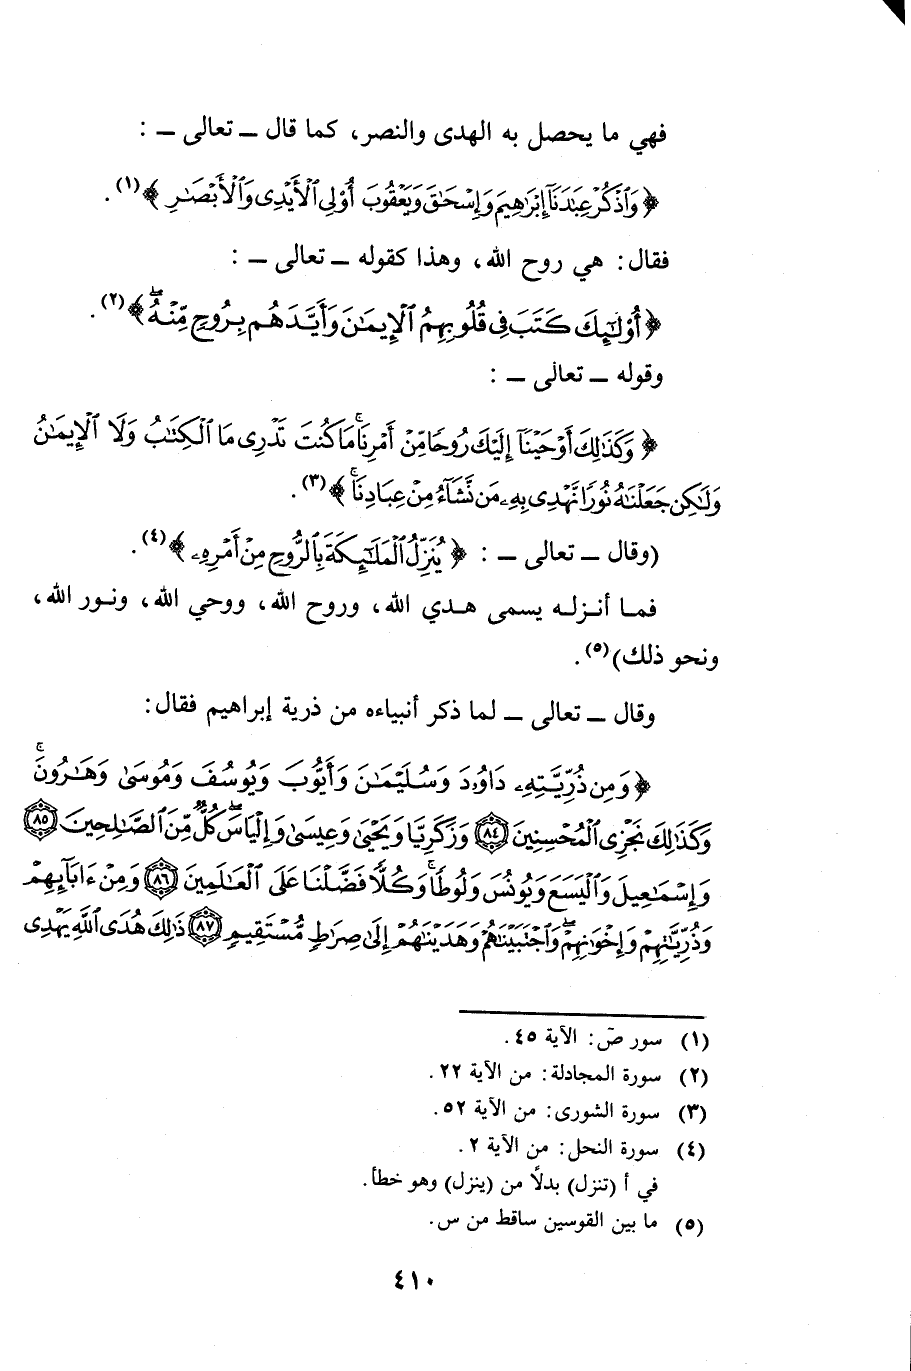 فهي ما يحصل به الهدى والنصر، كما قال ــ تعالى ــ :
﴿ وَٱذْكُرْ عِبَٰدَنَآ إِبْرَٰهِيمَ وَإِسْحَٰقَ وَيَعْقُوبَ أُو۟لِى ٱلْأَيْدِى وَٱلْأَبْصَٰرِ ﴾(١).
فقال: هي روح الله، وهذا كقوله ــ تعالى ــ :
﴿ أُو۟لَٰٓئِكَ كَتَبَ فِى قُلُوبِهِمُ ٱلْإِيمَٰنَ وَأَيَّدَهُم بِرُوحٍ مِّنْهُۖ ﴾(٢).
وقوله ــ تعالى ــ :
﴿ وَكَذَٰلِكَ أَوْحَيْنَآ إِلَيْكَ رُوحًا مِّنْ أَمْرِنَاۚ مَا كُنتَ تَدْرِى مَا ٱلْكِتَٰبُ وَلَا ٱلْإِيمَٰنُ
وَلَٰكِن جَعَلْنَٰهُ نُورًا نَّهْدِى بِهِۦ مَن نَّشَآءُ مِنْ عِبَادِنَاۚ ﴾(٣).
(وقال ــ تعالى ــ : ﴿ يُنَزِّلُ ٱلْمَلَٰٓئِكَةَ بِٱلرُّوحِ مِنْ أَمْرِهِۦ ﴾(٤).
فمـا أنـزلـه يسمى هـدي الله، وروح الله، ووحي الله، ونـور الله،
ونحو ذلك)(٥).
وقال ــ تعالى ــ لما ذكر أنبياءه من ذرية إبراهيم فقال:
﴿ وَمِن ذُرِّيَّتِهِۦ دَاوُۥدَ وَسُلَيْمَٰنَ وَأَيُّوبَ وَيُوسُفَ وَمُوسَىٰ وَهَٰرُونَۚ
وَكَذَٰلِكَ نَجْزِى ٱلْمُحْسِنِينَ ٨٤ وَزَكَرِيَّا وَيَحْيَىٰ وَعِيسَىٰ وَإِلْيَاسَۖ كُلٌّ مِّنَ ٱلصَّٰلِحِينَ ٨٥
وَإِسْمَٰعِيلَ وَٱلْيَسَعَ وَيُونُسَ وَلُوطًاۚ وَكُلًّا فَضَّلْنَا عَلَى ٱلْعَٰلَمِينَ ٨٦ وَمِنْ ءَابَآئِهِمْ
وَذُرِّيَّٰتِهِمْ وَإِخْوَٰنِهِمْۖ وَٱجْتَبَيْنَٰهُمْ وَهَدَيْنَٰهُمْ إِلَىٰ صِرَٰطٍ مُّسْتَقِيمٍ ٨٧ ذَٰلِكَ هُدَى ٱللَّهِ يَهْدِى
(١) سور صۤ: الآية ٤٥.
(٢) سورة المجادلة: من الآية ٢٢.
(٣) سورة الشورى: من الآية ٥٢.
(٤) سورة النحل: من الآية ٢.
في أ (تنزل) بدلاً من (ينزل) وهو خطأ.
(٥) ما بين القوسين ساقط من س.
٤١٠